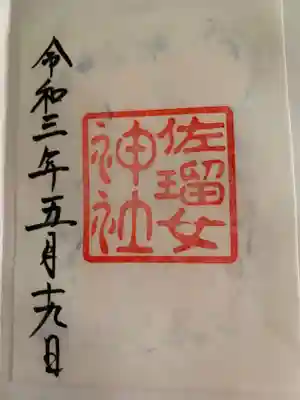 佐瑠女
神社
令和三年五月十九日